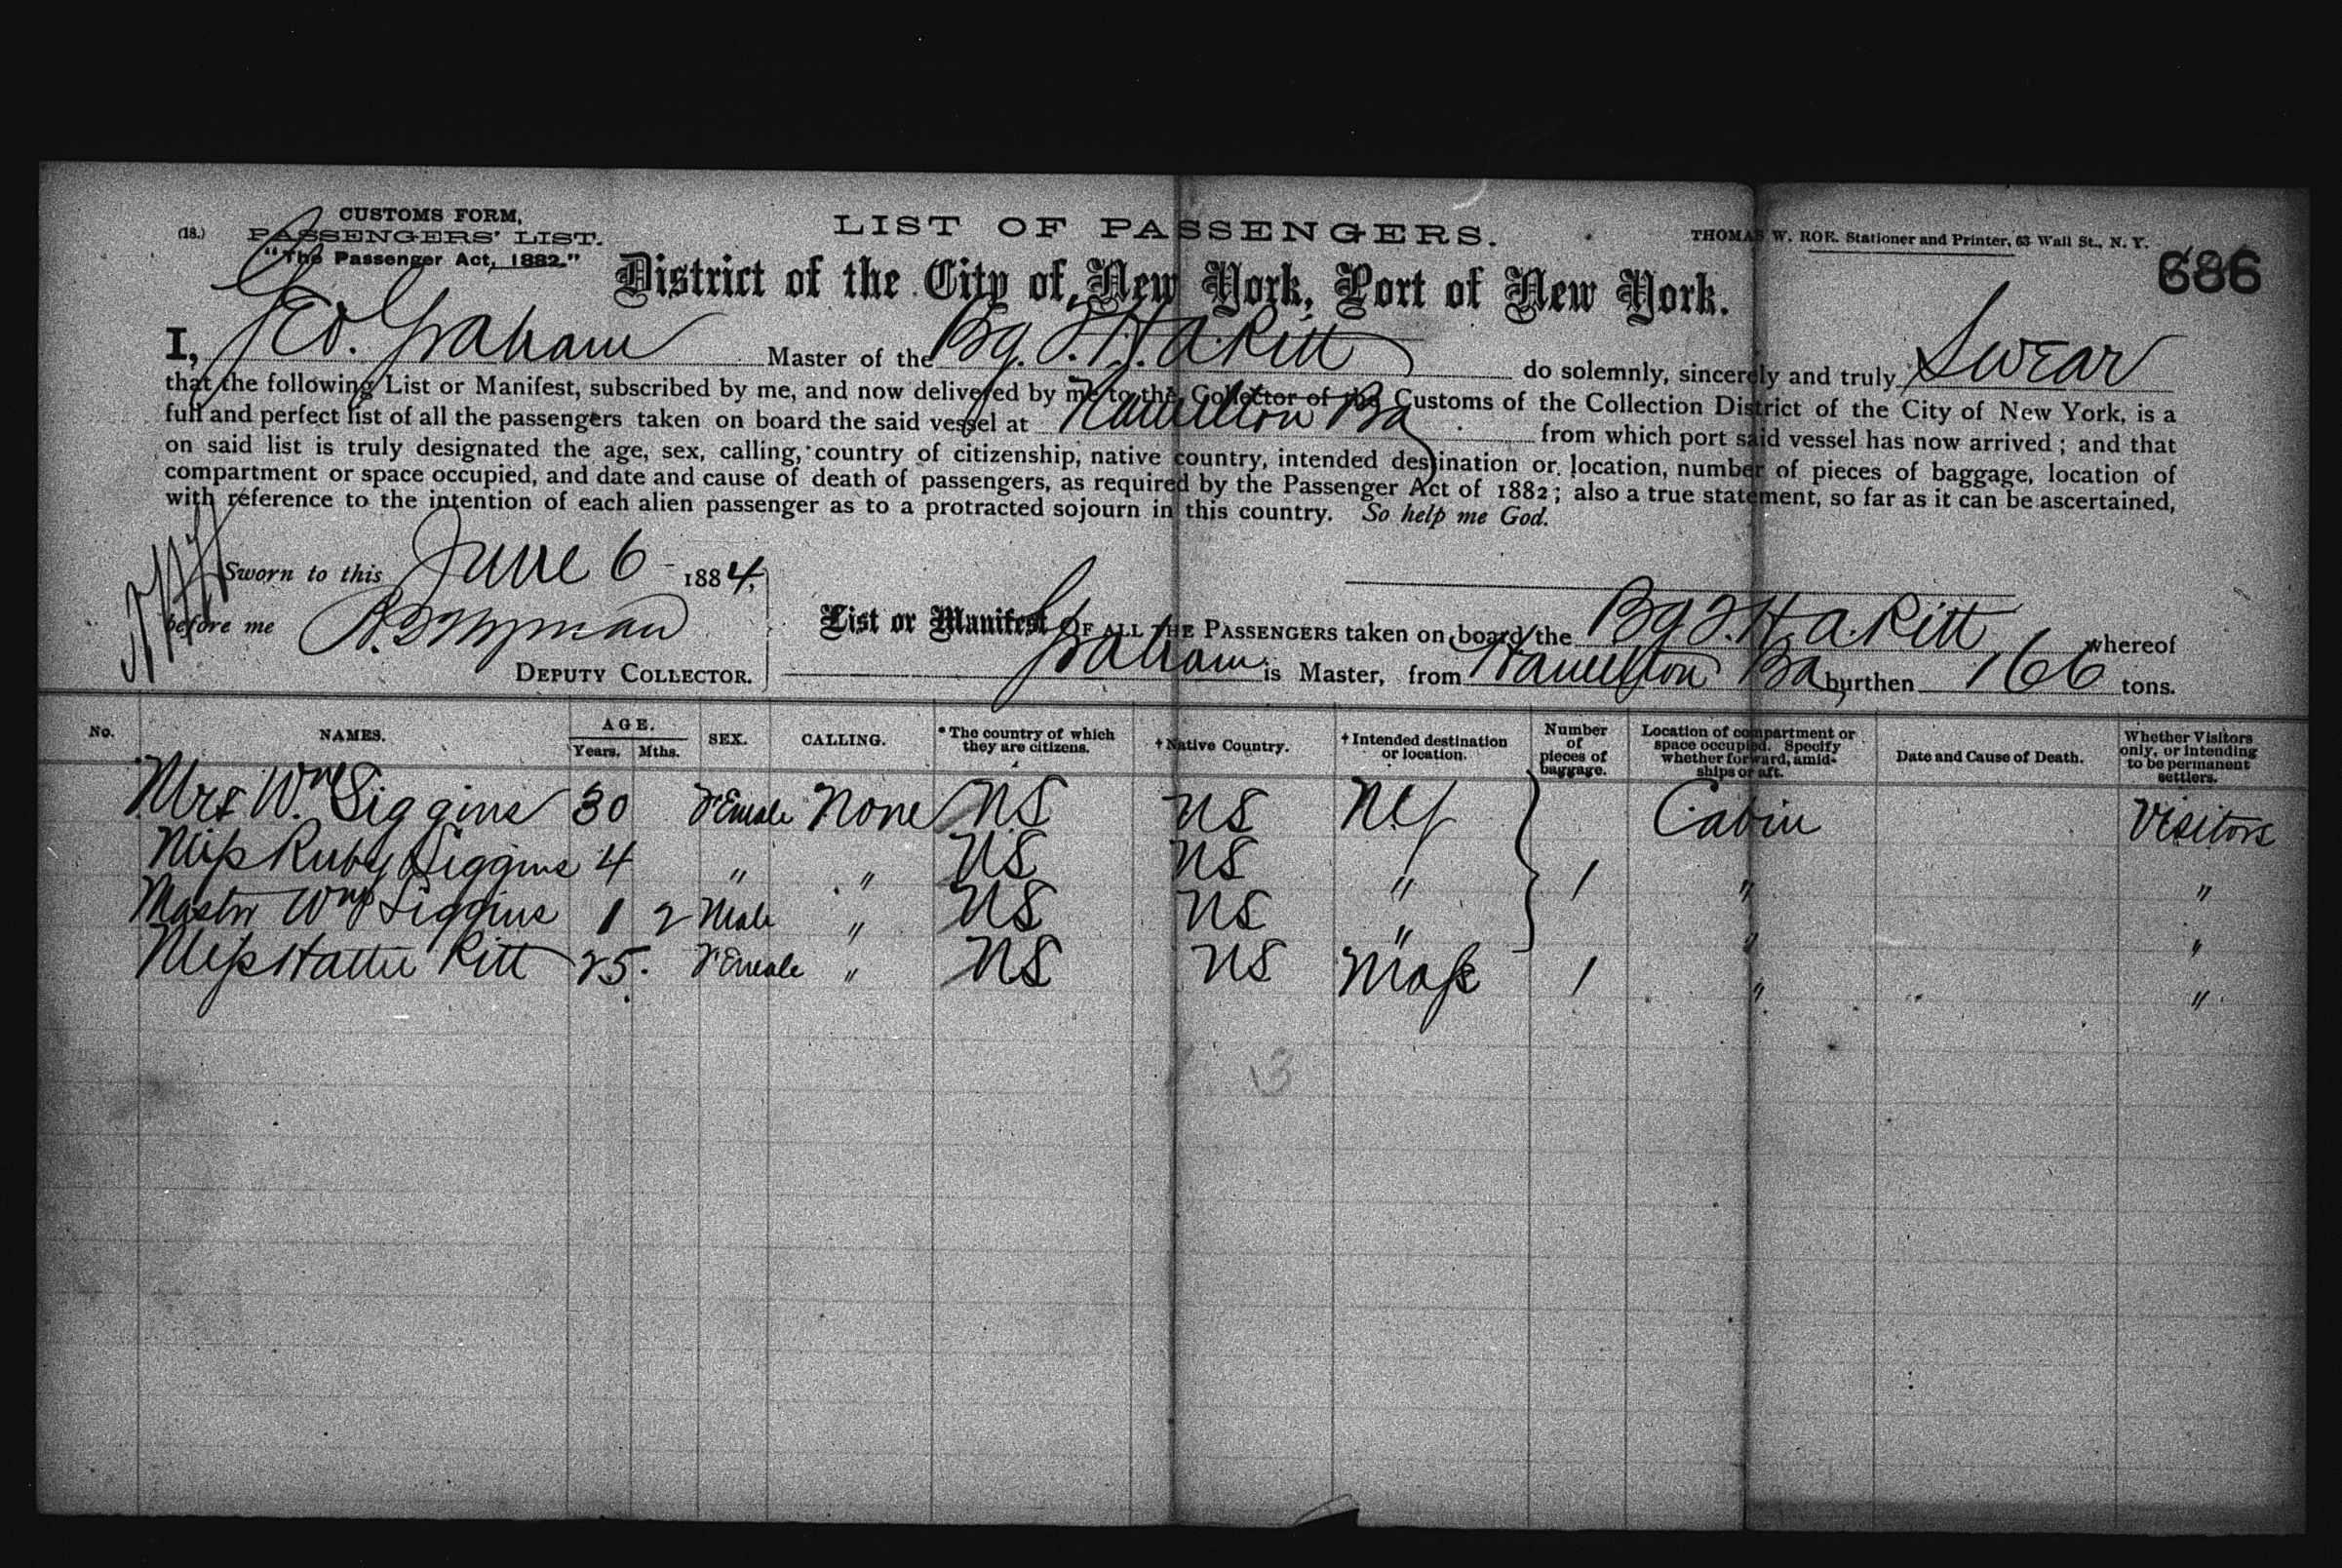 (18.) CUSTOMS FORM, PASSENGERS' LIST. "The Passenger Act, 1882."
LIST OF PASSENGERS.
THOMAS W. ROE. Stationer and Printer, 63 Wall St., N. Y.
686
District of the City of New York, Port of New York.
I, Geo. Graham Master of the Bg. T. H. A. Pitt do solemnly, sincerely and truly Swear
that the following List or Manifest, subscribed by me, and now delivered by me to the Collector of the Customs of the Collection District of the City of New York, is a
full and perfect list of all the passengers taken on board the said vessel at Hamilton Ba from which port said vessel has now arrived; and that
on said list is truly designated the age, sex, calling, country of citizenship, native country, intended destination or location, number of pieces of baggage, location of
compartment or space occupied, and date and cause of death of passengers, as required by the Passenger Act of 1882; also a true statement, so far as it can be ascertained,
with reference to the intention of each alien passenger as to a protracted sojourn in this country. So help me God.
Geo Graham
Sworn to this June 6 1884,
before me
DEPUTY COLLECTOR.
List or Manifest OF ALL THE PASSENGERS taken on board the Bg T. H. A. Pitt whereof
Graham is Master, from Hamilton Ba burthen 166 tons.
No. NAMES. AGE. Years. Mths. SEX. CALLING. *The country of which they are citizens. †Native Country. †Intended destination or location. Number of pieces of baggage. Location of compartment or space occupied. Specify whether forward, amidships or aft. Date and Cause of Death. Whether Visitors only, or intending to be permanent settlers.
Mrs Wm Siggins 30 Female None US US NY Cabin Visitors
Miss Ruby Siggins 4 " " US US " 1 " "
Mastr Wm Siggins 1 2 Male " US US " " "
Miss Hattie Pitt 25. Female " US US Mass 1 " "